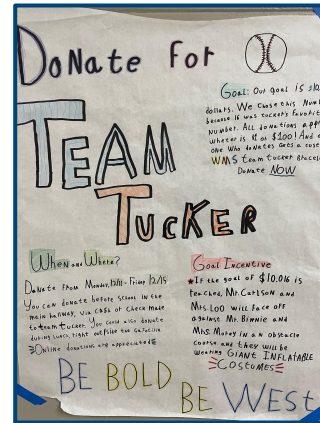 DoNate For
Goal: Our goal is $10,
dollars. We Chose this Num
because 16 was tucker's favorit
Number. All donations app
wheter is $1 or $100! And
one Who doNates Gets a cust
WMS team tucker Bracel
Donate NOW
TEAM
TUCKER
When and Where?
DoNate from Monday, 12/11- Friday 12/15
You can donate before school in the
main hallway, via cash or Check made
to team tucker. You could also donate
during lunch, right outside the cafeteria
Online donations are appreciated
Goal Incentive
★If the goal of $10,016 is
reached, Mr. Carlson and
Mrs. Loo will face off
against Mr. Binnie and
Mrs. Morey in an obstacle
course and they will be
wearing GIANT INFLATABLE
COSTUMES
BE BOLD
BE WEST